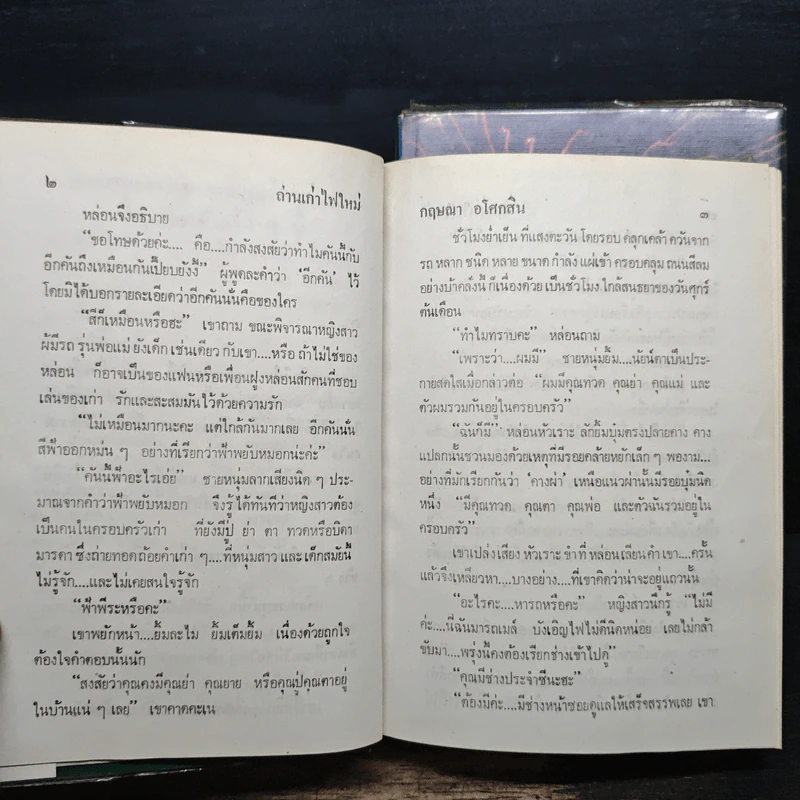 ๒
ถ่านเก่าไฟใหม่
หล่อนจึงอธิบาย
“ขอโทษด้วยค่ะ.... คือ....กำลังสงสัยว่าทำไมคันนี้กับ
อีกคันถึงเหมือนกันเปี๊ยบยังงี้” ผู้พูดละคำว่า ‘อีกคัน’ ไว้
โดยมิได้บอกรายละเอียดว่าอีกคันนั่นคือของใคร
“สีก็เหมือนหรือฮะ” เขาถาม ขณะพิจารณาหญิงสาว
ผู้มีรถ รุ่นพ่อแม่ ยังเด็ก เช่นเดียว กับเขา....หรือ ถ้า ไม่ใช่ของ
หล่อน ก็อาจเป็นของแฟนหรือเพื่อนฝูงหล่อนสักคนที่ชอบ
เล่นของเก่า รักและสะสมมันไว้ด้วยความรัก
“ไม่เหมือนมากนะคะ แต่ใกล้กันมากเลย อีกคันนั่น
สีฟ้าออกหม่น ๆ อย่างที่เรียกว่าฟ้าพยับหมอกน่ะค่ะ”
“คันนี้ฟ้าอะไรเอ่ย” ชายหนุ่มลากเสียงนิด ๆ ประ-
มาณจากคำว่าฟ้าพยับหมอก จึงรู้ได้ทันทีว่าหญิงสาวต้อง
เป็นคนในครอบครัวเก่า ที่ยังมีปู่ ย่า ตา ทวดหรือบิดา
มารดา ซึ่งถ่ายทอดถ้อยคำเก่า ๆ....ที่หนุ่มสาว และเด็กสมัยนี้
ไม่รู้จัก....และไม่เคยสนใจรู้จัก
“ฟ้าพีระหรือคะ”
เขาพยักหน้า....ยิ้มละไม ยิ้มเต็มยิ้ม เนื่องด้วยถูกใจ
ต้องใจคำตอบนั้นนัก
“สงสัยว่าคุณคงมีคุณย่า คุณยาย หรือคุณปู่คุณตาอยู่
ในบ้านแน่ ๆ เลย” เขาคาดคะเน
กฤษณา อโศกสิน
๓
ชั่วโมงย่ำเย็น ที่แสงตะวัน โดยรอบ คลุกเคล้า ควันจาก
รถ หลาก ชนิด หลาย ขนาด กำลัง แผ่เข้า ครอบคลุม ถนนสีลม
อย่างบ้าคลั่งนี้ ก็เนื่องด้วย เป็นชั่วโมง ใกล้สนธยาของวันศุกร์
ต้นเดือน
“ทำไมทราบคะ” หล่อนถาม
“เพราะว่า....ผมมี” ชายหนุ่มยิ้ม....นัยน์ตาเป็นประ-
กายสดใสเมื่อกล่าวต่อ “ผมมีคุณทวด คุณย่า คุณแม่ และ
ตัวผมรวมกันอยู่ในครอบครัว”
“ฉันก็มี” หล่อนหัวเราะ ลักยิ้มบุ๋มตรงปลายคาง คาง
แปลกนั้นชวนมองด้วยเหตุที่มีรอยคล้ายหยักเล็ก ๆ พองาม...
อย่างที่มักเรียกกันว่า ‘คางผ่า’ เหนือแนวผ่านั้นมีรอยบุ๋มนิด
หนึ่ง “มีคุณทวด คุณตา คุณพ่อ และตัวฉันรวมอยู่ใน
ครอบครัว”
เขาเปล่งเสียง หัวเราะ ขำที่ หล่อนเลียนคำ เขา....ครั้น
แล้วจึงเหลียวหา....บางอย่าง....ที่เขาคิดว่าน่าจะอยู่แถวนั้น
“อะไรคะ....หารถหรือคะ” หญิงสาวนึกรู้ “ไม่มี
ค่ะ....นี่ฉันมารถเมล์ บังเอิญไฟไม่ติดหน่อย เลยไม่กล้า
ขับมา....พรุ่งนี้คงต้องเรียกช่างเข้าไปดู”
“คุณมีช่างประจำซีนะฮะ”
“ต้องมีค่ะ....มีช่างหน้าซอยดูแลให้เสร็จสรรพเลย เขา